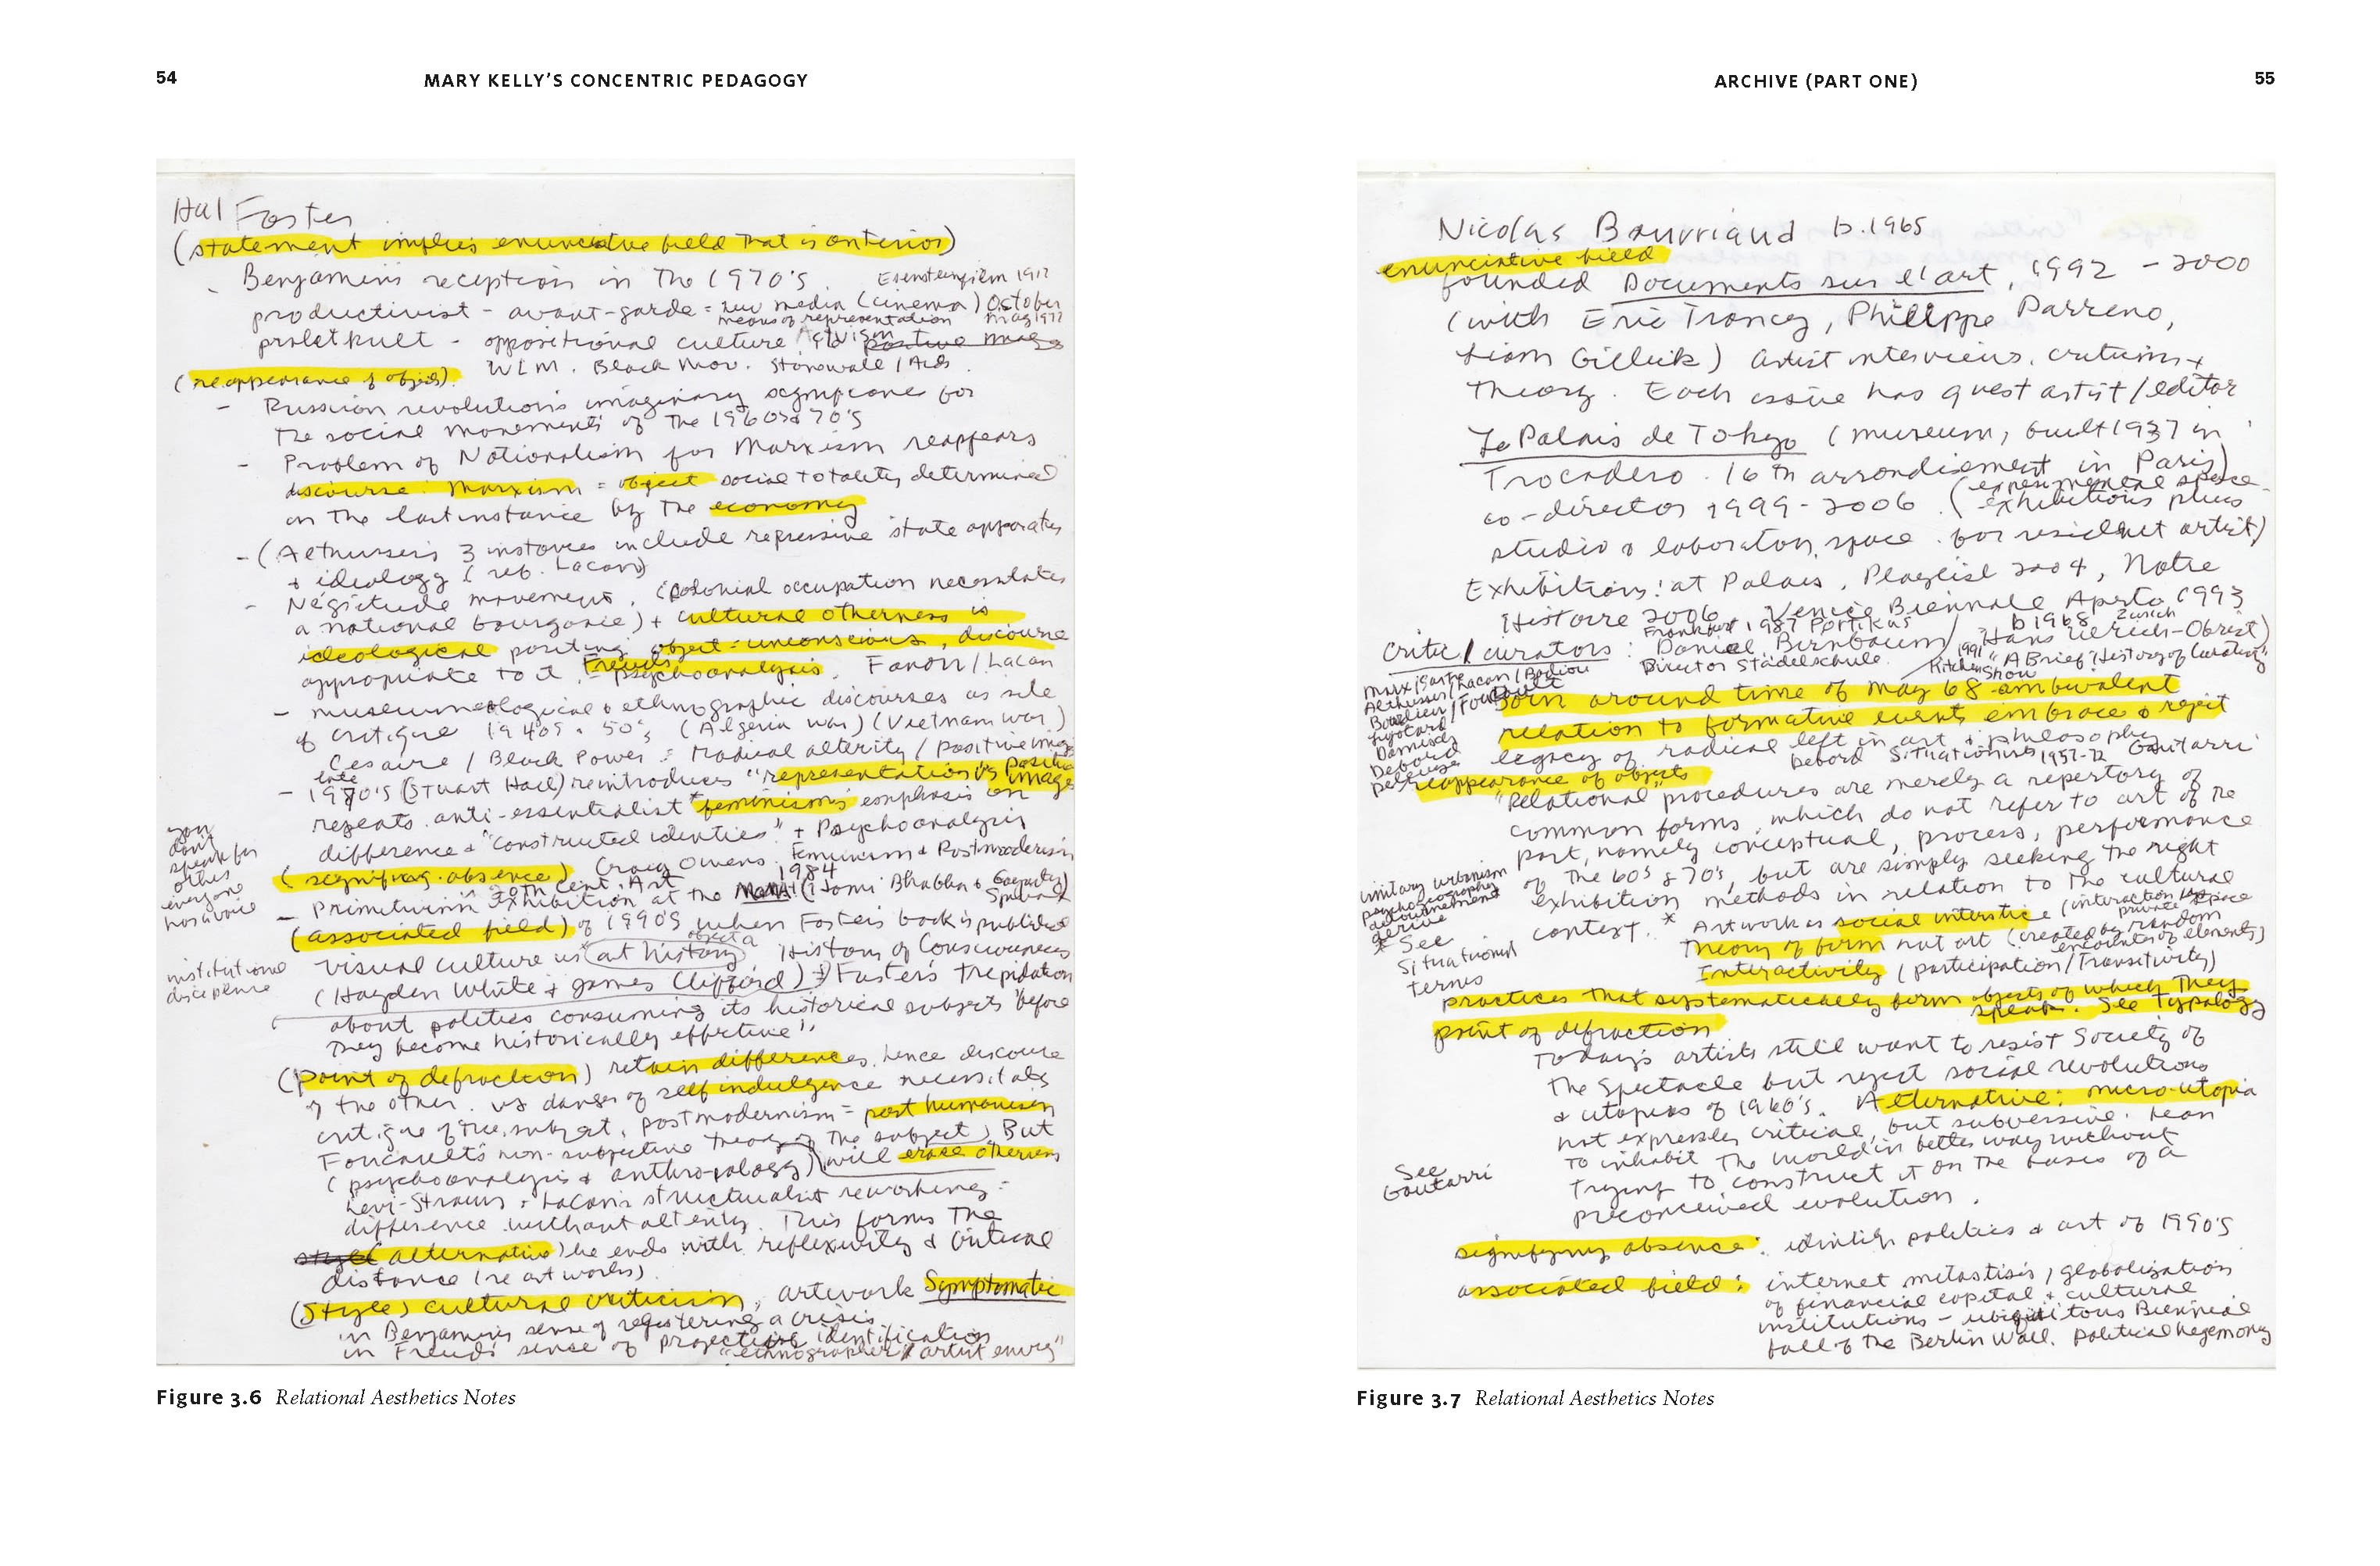 54
MARY KELLY'S CONCENTRIC PEDAGOGY
Hal Foster
(statement implies enunciative field that is anterior)
- Benjamin's reception in the 1970's.
productivist - avant-garde = new media (cinema) October
means of representation
proletkult - oppositional culture Activism positive image
WLM. Black Mov. Stonewall / Aids.
(reappearance of objects).
- Russian revolution's imaginary significance for
the social movements of the 1960s & 70's
- Problem of Nationalism for Marxism reappears
discourse: Marxism = object social totality determined
in the last instance by the economy
- (Althusser's 3 instances include repressive state apparatus
+ ideology (ref. Lacan)
- Negritude movement, (colonial occupation necessitates
a national bourgoisie) + cultural otherness is
ideological positing object = unconscious, discourse
appropriate to it = Freud's psychoanalysis. Fanon / Lacan
- museumological & ethnographic discourses as site
of critique 1940s & 50's (Algeria war) (Vietnam war)
Cesaire / Black Power = Radical alterity / positive image
- late 1970's (Stuart Hall) reintroduces "representation vs positive image
repeats anti-essentialist *feminism's emphasis on
difference & "constructed identities" + Psychoanalysis
(signifying absence) Craig Owens. Feminism & Postmodernism
1984
- "Primitivism" 20th Cent. Art exhibition at the MoMA! (Homi Bhabha &
Spivak)
(associated field) of 1990's when Foster's book is published
visual culture vs art history History of Consciousness
(Hayden White + James Clifford) Foster's trepidation
about politics consuming its historical subjects "before
they become historically effective"
(point of defraction) retain differences, hence discourse
of the other. vs danger of self indulgence necessitates
critique of the subject, postmodernism = post humanism
Foucault's non-subjective theory of the subject) But
(psychoanalysis & anthropology) will erase otherness
Levi-Strauss + Lacan's structuralist reworking =
difference without alterity. This forms the
(alternative) he ends with reflexivity & critical
distance (re art works)
(style) cultural criticism, artwork Symptomatic
in Benjamin's sense of registering a crisis
in Freud's sense of projective identification
"ethnographer / artist envy"
you
don't
speak for
other
everyone
has a voice
institutional
discipline
Figure 3.6 Relational Aesthetics Notes
ARCHIVE (PART ONE)
55
Nicolas Bourriaud b.1965
enunciative field
founded Documents sur l'art, 1992 - 2000
(with Eric Troncy, Philippe Parreno,
Liam Gillick) artist interviews, criticism +
theory. Each issue has guest artist / editor
Le Palais de Tokyo (museum, built 1937 in
Trocadero. 16th arrondisement in Paris)
co-director 1999 - 2006. (experimental space -
exhibitions plus
studio & laboratory space for resident artist)
Exhibitions: at Palais, Playlist 2004, Notre
Histoire 2006, Venice Biennale Aperto 1993
Frankfurt 1987 Portikus b 1968 Zurich
Critic / curators: Daniel Birnbaum / Hans Ulrich-Obrist)
Director Städelschule. 1991 Kitchen Show "A Brief History of Curating"
Marx / Sartre
Althusser / Lacan / Badiou
Bourdieu / Foucault
Lyotard
Damisch
Debord
Deleuze
born around time of May 68 - ambivalent
relation to formative events embrace & reject
legacy of radical left in art & philosophy
Debord Situationists 1957-72 Gauttarri
reappearance of objects
"Relational" procedures are merely a repertory of
common forms, which do not refer to art of the
past, namely conceptual, process, performance
of the 60s & 70's, but are simply seeking the right
exhibition methods in relation to the cultural
context. * Artwork as social interstice (interaction
private space
Theory of form not art (created by random
encounters of elements)
Interactivity (participation / Transitivity)
unitary urbanism
psychogeography
detournement
derive
* See
Situationist
terms
practices that systematically form objects of which they
speak. See Typology
point of defraction
Today's artists still want to resist Society of
the Spectacle but reject social revolutions
& utopias of 1960's. Alternative: micro-utopia
not expressly critical, but subversive: lean
to inhabit the world in better way without
trying to construct it on the basis of a
preconceived evolution.
See
Gautarri
signifying absence: identity politics & art of 1990's
associated field: internet metastisis, globalization
of financial capital & cultural
institutions - ubiquitous Biennial
fall of the Berlin Wall. political hegemony
Figure 3.7 Relational Aesthetics Notes